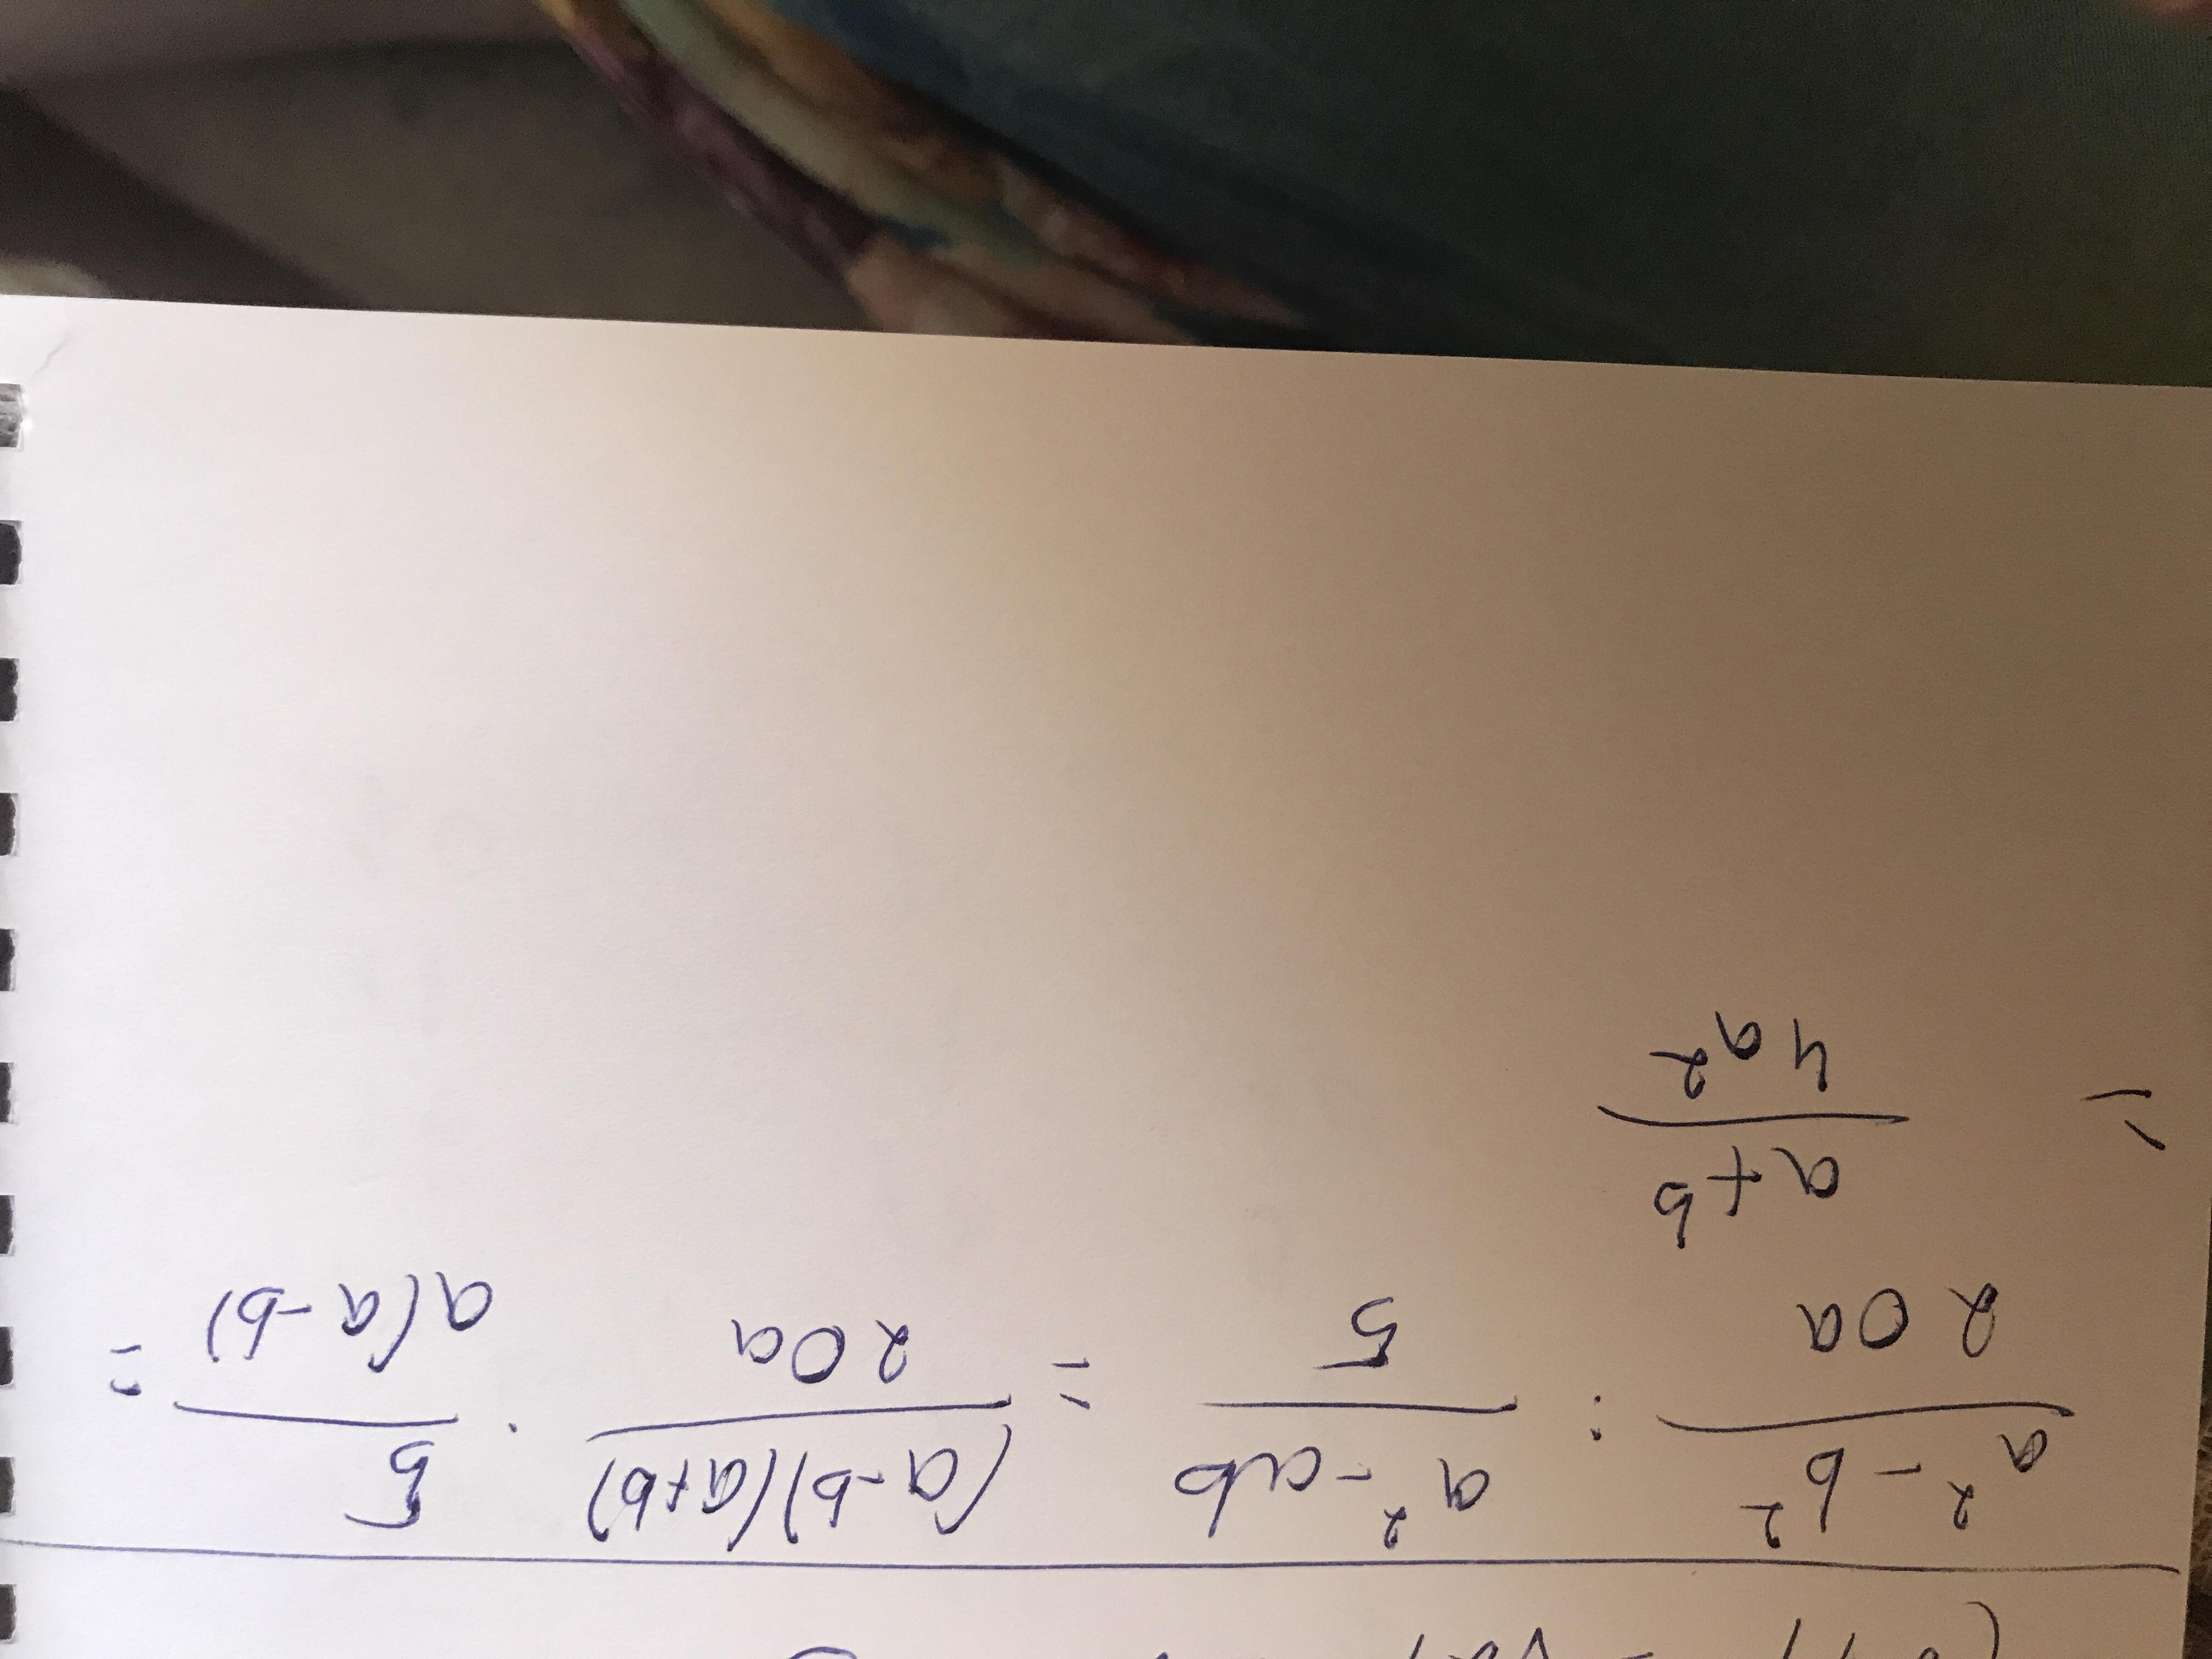 (a² - b²)/(20a) : (a² - ab)/5 = ((a-b)(a+b))/(20a) · 5/(a(a-b)) =
= (a+b)/(4a²)